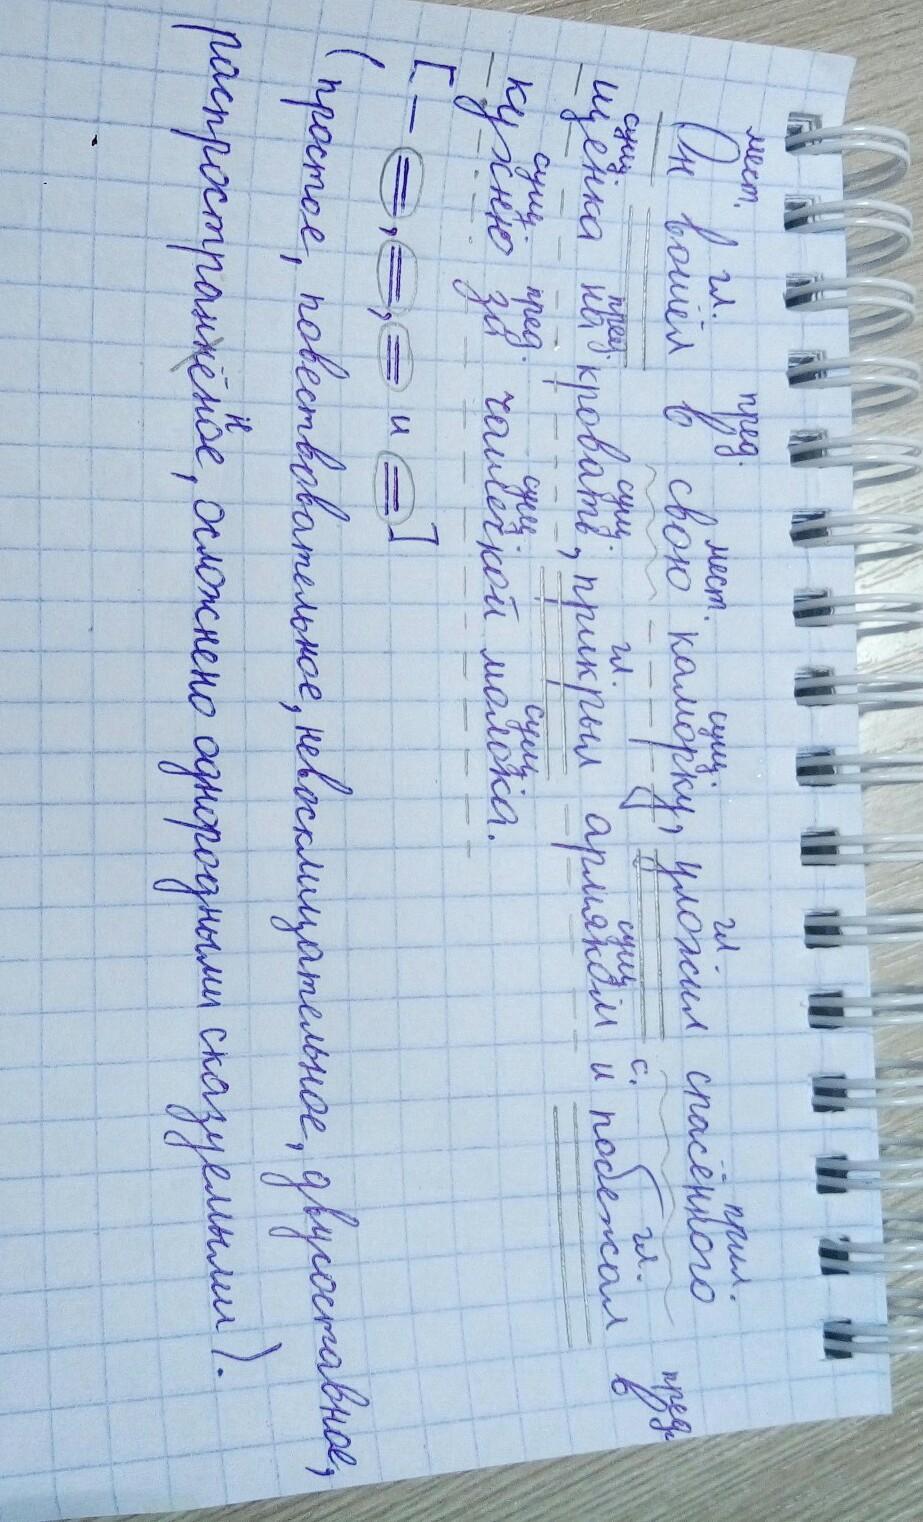 мест. гл. пред. мест. сущ. гл прил.
Он вошёл в свою каморку, уложил спасённого
сущ. пред. сущ. гл. сущ с. гл. пред.
щенка на кровать, прикрыл армяком и побежал в
сущ. пред. сущ. сущ
кухню за чашечкой молока.
[— =, =, = и =]
(простое, повествовательное, невосклицательное, двусоставное,
н
распространнёное, осложнено однородными сказуемыми).